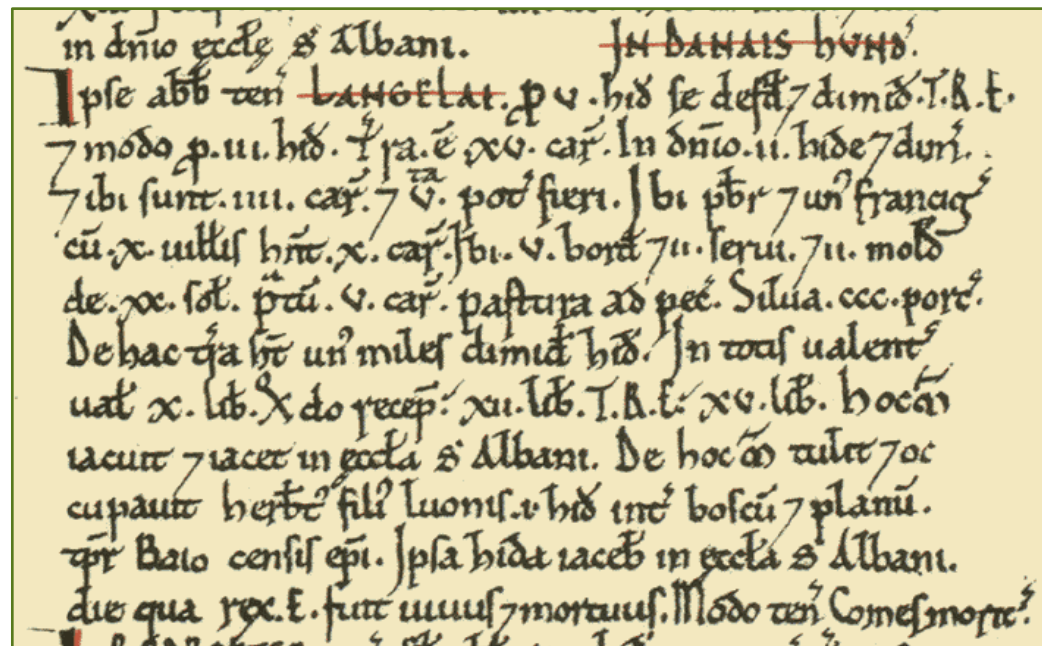 in dñio ęccłę S̃ Albani. IN DANAIS HVND'.
Ipse abb̃ ten̄ LANGELAI. ꝑ v. hiđ se defđ ⁊ dimiđ. T.R.E.
⁊ modo ꝑ .iii. hiđ. Tr̃a. ē .xv. car̃. In dñio .ii. hidę ⁊ dim̃.
⁊ ibi sunt .iiii. car̃. ⁊ v.ta pot' fieri. Ibi pb̃r ⁊ un' francig'
cū .x. uiłłis hn̄t .x. car̃. Ibi .v. borđ ⁊ ii. serui. ⁊ ii. molđ
de .xx. soł. p̃tū .v. car̃. pastura ad pec̃. Silua .ccc. porc'.
De hac tr̃a ht̃ un' miles dimiđ hiđ. In totis ualent'
uał x. lib̃. Q̇do recep̃: xii. lib̃. T.R.E: xv. lib̃. hoc m̃
iacuit ⁊ iacet in ęccła S̃ Albani. De hoc m̃ tulit ⁊ oc
cupauit herbt' fili' Iuonis .i. hiđ int' boscū ⁊ planū.
tp̃r Baio censis ep̃i. Ipsa hida iaceb̃ in ęccła S̃ Albani.
die qua rex. E. fuit uiuus ⁊ mortuus. Modo ten̄ Comes morit'.